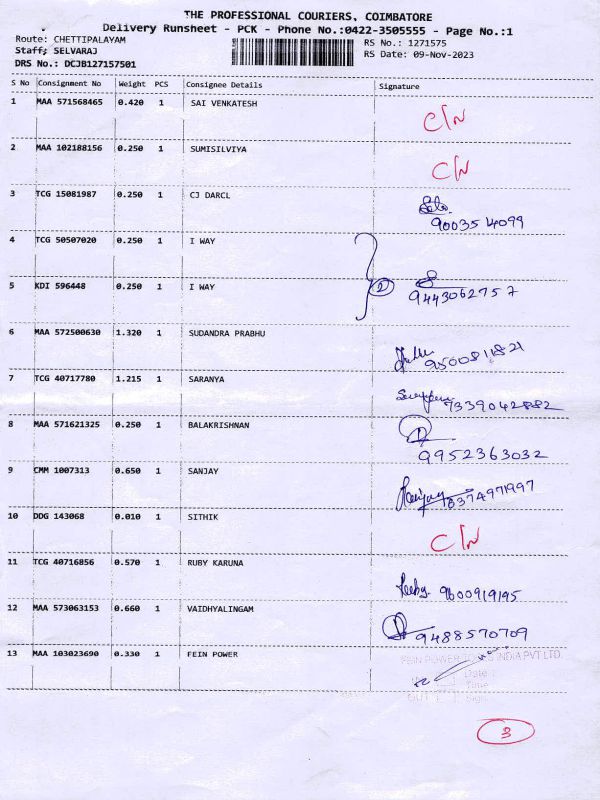 THE PROFESSIONAL COURIERS, COIMBATORE
Delivery Runsheet - PCK - Phone No.:0422-3505555 - Page No.:1
Route: CHETTIPALAYAM
RS No.: 1271575
Staff: SELVARAJ
RS Date: 09-Nov-2023
DRS No.: DCJB127157501
S No Consignment No Weight PCS Consignee Details Signature
1 MAA 571568465 0.420 1 SAI VENKATESH C/N
2 MAA 102188156 0.250 1 SUMISILVIYA C/N
3 TCG 15081987 0.250 1 CJ DARCL
9003514099
4 TCG 50507020 0.250 1 I WAY
5 KDI 596448 0.250 1 I WAY 2
9443062757
6 MAA 572500630 1.320 1 SUDANDRA PRABHU
9500811821
7 TCG 40717780 1.215 1 SARANYA
7339042882
8 MAA 571621325 0.250 1 BALAKRISHNAN
9952363032
9 CMM 1007313 0.650 1 SANJAY
Sanjay 8374971997
10 DDG 143068 0.010 1 SITHIK
C/N
11 TCG 40716856 0.570 1 RUBY KARUNA
9600919195
12 MAA 573063153 0.660 1 VAIDHYALINGAM
9488570709
13 MAA 103023690 0.330 1 FEIN POWER
FEIN POWER TOOLS INDIA PVT LTD.
Date :
Time
OUT Sign.
3